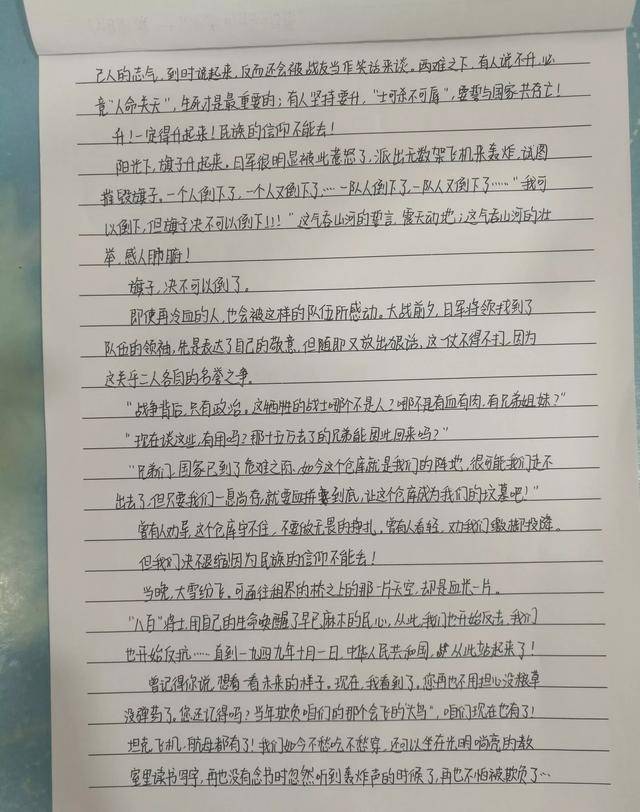 己人的志气，到时说起来，反而还会被战友当作笑话来谈。两难之下，有人说不升，必
竟"人命关天"，生死才是最重要的；有人坚持要升，"士可杀不可辱"，要誓与国家共存亡！
升！一定得升起来！民族的信仰不能丢！
阳光下，旗子升起来。日军很明显被此惹怒了，派出无数架飞机来轰炸，试图
摧毁旗子。一个人倒下了，一个人又倒下了……一队人倒下了，一队人又倒下了……"我可
以倒下，但旗子决不可以倒下！！！"这气吞山河的誓言，震天动地；这气吞山河的壮
举，感人肺腑！
旗子，决不可以倒了。
即使再冷血的人，也会被这样的队伍所感动。大战前夕，日军将领找到了
队伍的领袖，先是表达了自己的敬意，但随即又放出狠话，这一仗不得不打，因为
这关乎二人各自的名誉之争。
"战争背后，只有政治。这牺牲的战士哪个不是人？哪不是有血有肉，有兄弟姐妹？"
"现在谈这些，有用吗？那十五万去了的兄弟能因此回来吗？"
"兄弟们，国家已到了危难之雨，如今这个仓库就是我们的阵地，很可能我们走不
出去了，但只要我们一息尚存，就要拼到底，让这个仓库成为我们的坟墓吧！"
曾有人劝导，这个仓库守不住，不要做无畏的挣扎。曾有人看轻，劝我们缴械投降。
但我们决不退缩！因为民族的信仰不能丢！
当晚，大雪纷飞。可通往租界的桥之上的那一片天空，却是血光一片。
"八百"将士，用自己的生命唤醒了早已麻木的民心，从此，我们也开始反击，我们
也开始反抗……直到一九四九年十月一日，中华人民共和国，从此站起来了！
曾记得你说，想看一看未来的样子。现在，我看到了。您再也不用担心没粮草
没弹药了。您还记得吗？当年欺负咱们的那个会飞的"大鸟"，咱们现在也有了！
坦克，飞机，航母都有了！我们如今不愁吃，不愁穿，还可以坐在光明嘀亮的教
室里读书写字，再也没有念书时忽然听到轰炸声的时候了，再也不怕被欺负了…